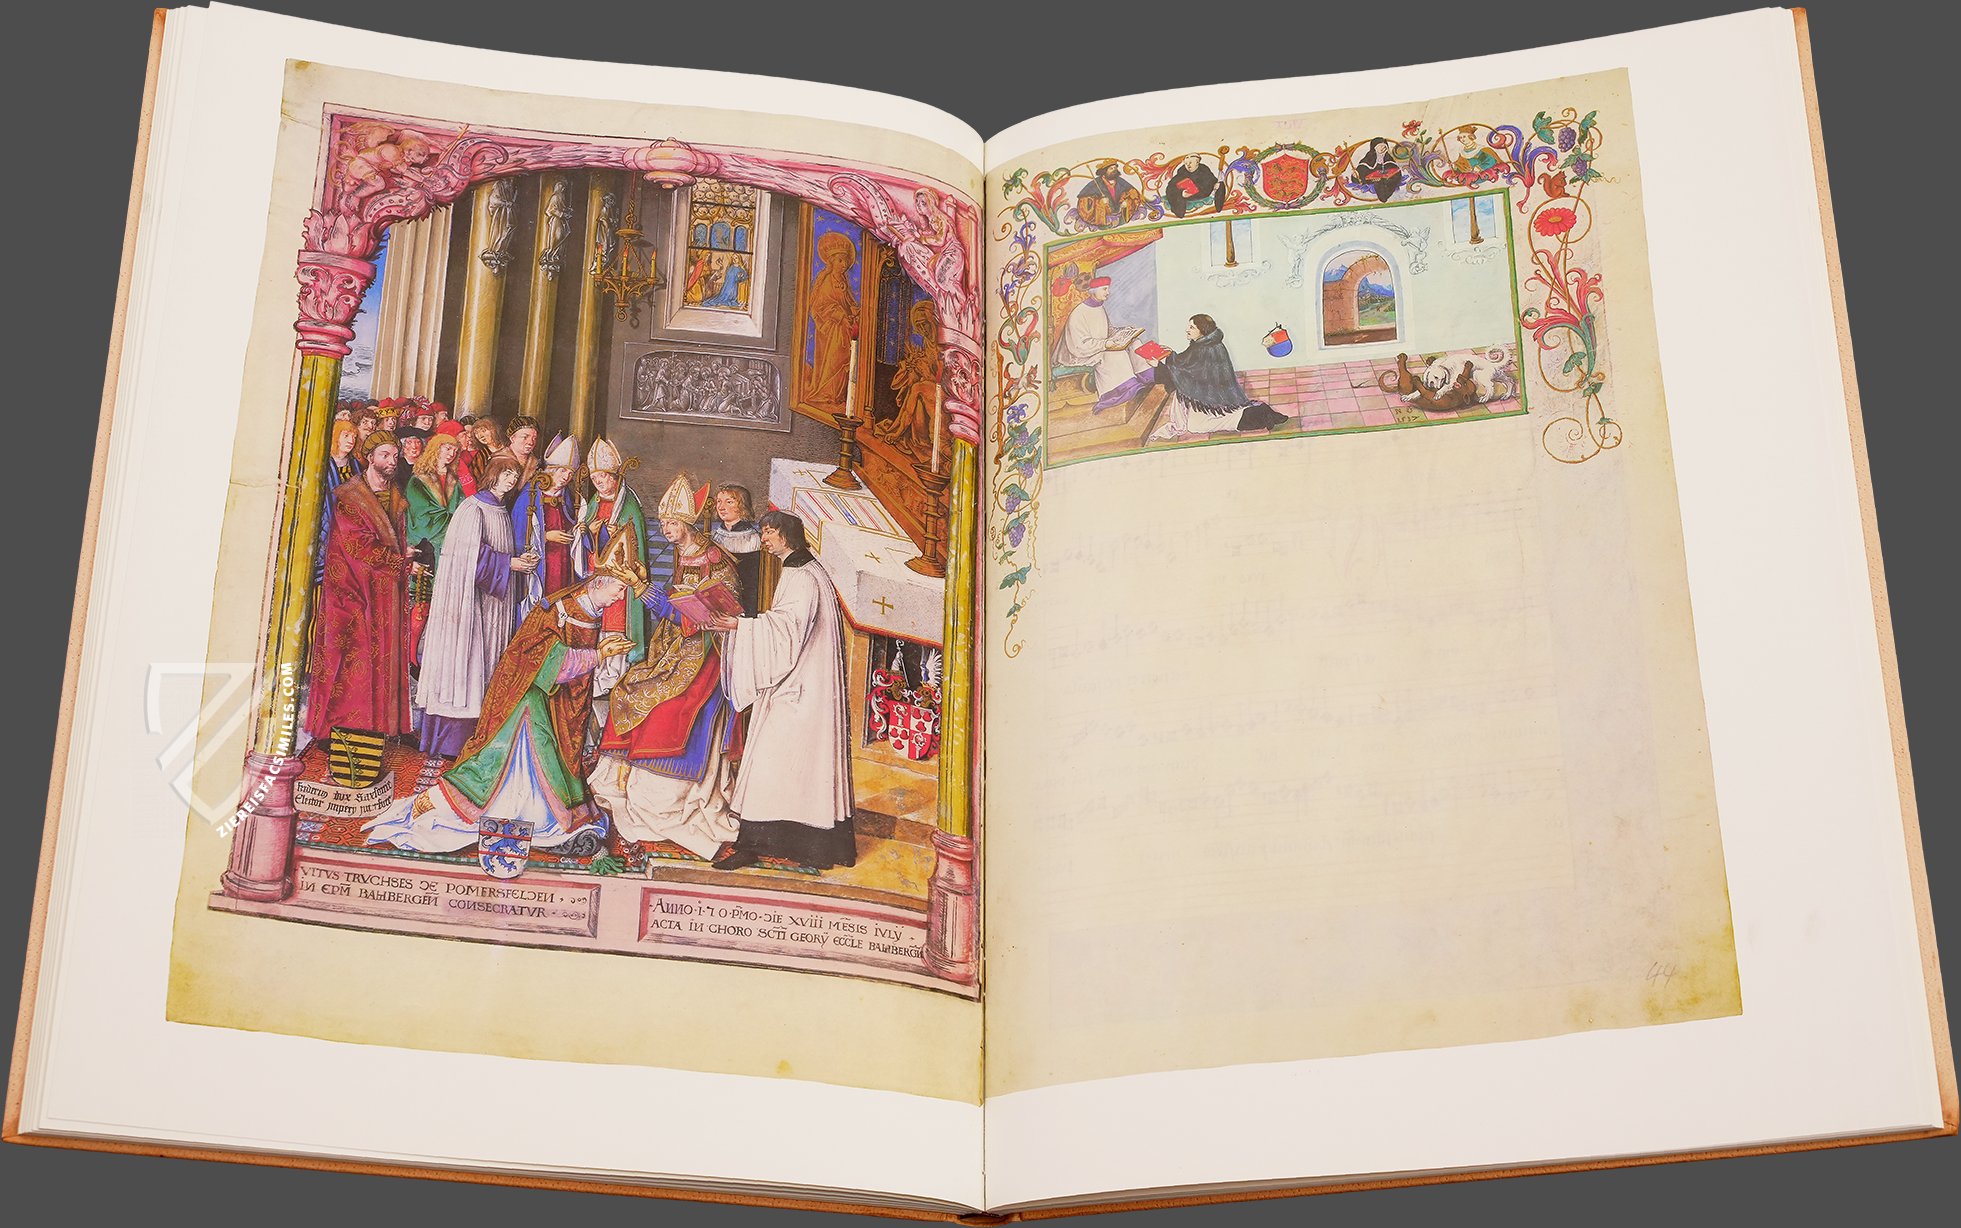 Fridericus dux Saxonie
Elector imperij
VITVS TRVCHSES DE POMERSFELDEN ·
IN EPM̄ BAHBERGEN̄ CONSECRATVR ·
· ANNO · I · 7 0 · P̄MO · DIE XVIII MĒSIS IVLY ·
ACTA IN CHORO SCTĪ GEORY ECCLE BAHBERGN̄
N G
1517
44
ZIEREISFACSIMILES.COM